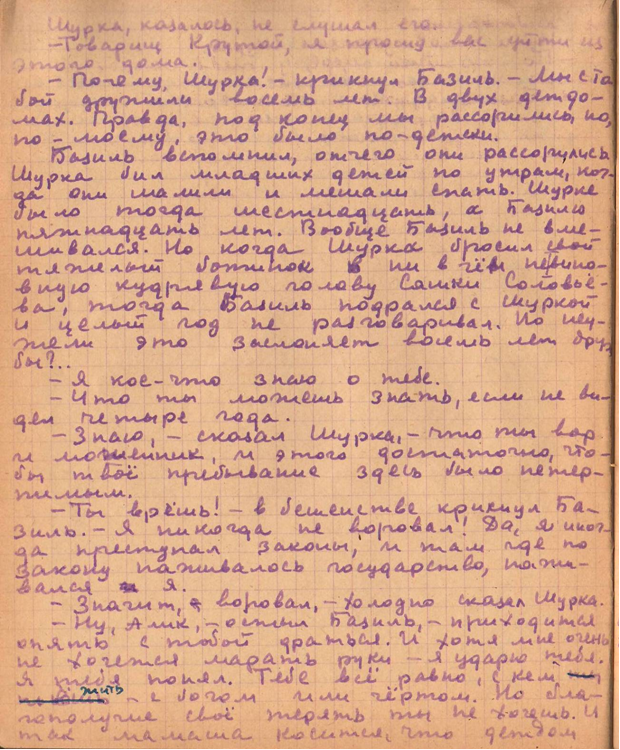 Шурка, казалось, не слушал его.
– Товарищ Крутой, я прошу вас уйти из
этого дома.
– Почему, Шурка! – крикнул Базиль. – Мы с то
бой дружили восемь лет. В двух детдо-
мах. Правда, под конец мы рассорились, но,
по-моему, это было по-детски.
Базиль вспомнил, отчего они рассорулись
Шурка бил младших детей по утрам, ког-
да они шалили и мешали спать. Шурке
было тогда шестнадцать, а Базилю
пятнадцать лет. Вообще Базиль не вме-
шивался. Но когда Шурка бросил свой
тяжелый ботинок в ни в чём неповин-
вную кудрявую голову Сашки Соловьё-
ва, тогда Базиль подрался с Шуркой
и целый год не разговаривал. Но неу-
жели это заслоняет восемь лет друж
бы?..
– Я кое-что знаю о тебе.
– Что ты можешь знать, если не ви-
дел четыре года.
– Знаю, – сказал Шурка, – что ты вор
и мошенник, и этого достаточно, что-
бы твоё пребывание здесь было нетер-
пимым.
– Ты врёшь! – в бешенстве крикнул Ба-
зиль. – Я никогда не воровал! Да, я иног-
да преступал законы, и там где по
закону наживалось государство, нажи-
вался я.
– Значит, воровал, – холодно сказал Шурка.
– Ну, Алик, – остыл Базиль, – приходится
опять с тобой драться. И хотя мне очень
не хочется марать руки – я ударю тебя.
Я тебя понял. Тебе всё равно, с кем
жить – с богом или чёртом. Но бла-
гополучие своё терять ты не хочешь. И
так мамаша косится, что детдом